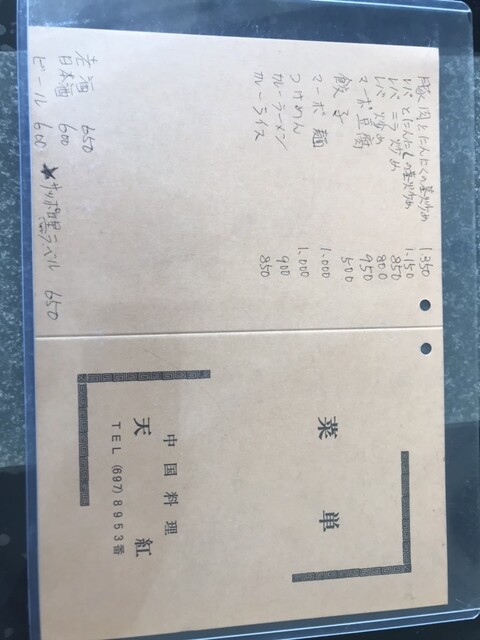 豚肉とにんにくの芽炒め 1.350
レバとにんにくの芽炒め 1.150
レバニラ炒め 850
レバ炒め 800
マーボ豆腐 950
餃子 500
マーボ麺 1.000
つけめん 1.000
カレーラーメン 900
カレーライス 850
老酒 650
日本酒 600
ビール 600 ★サッポロ黒ラベル 650
菜単
中国料理
天紅
TEL (697) 8953番